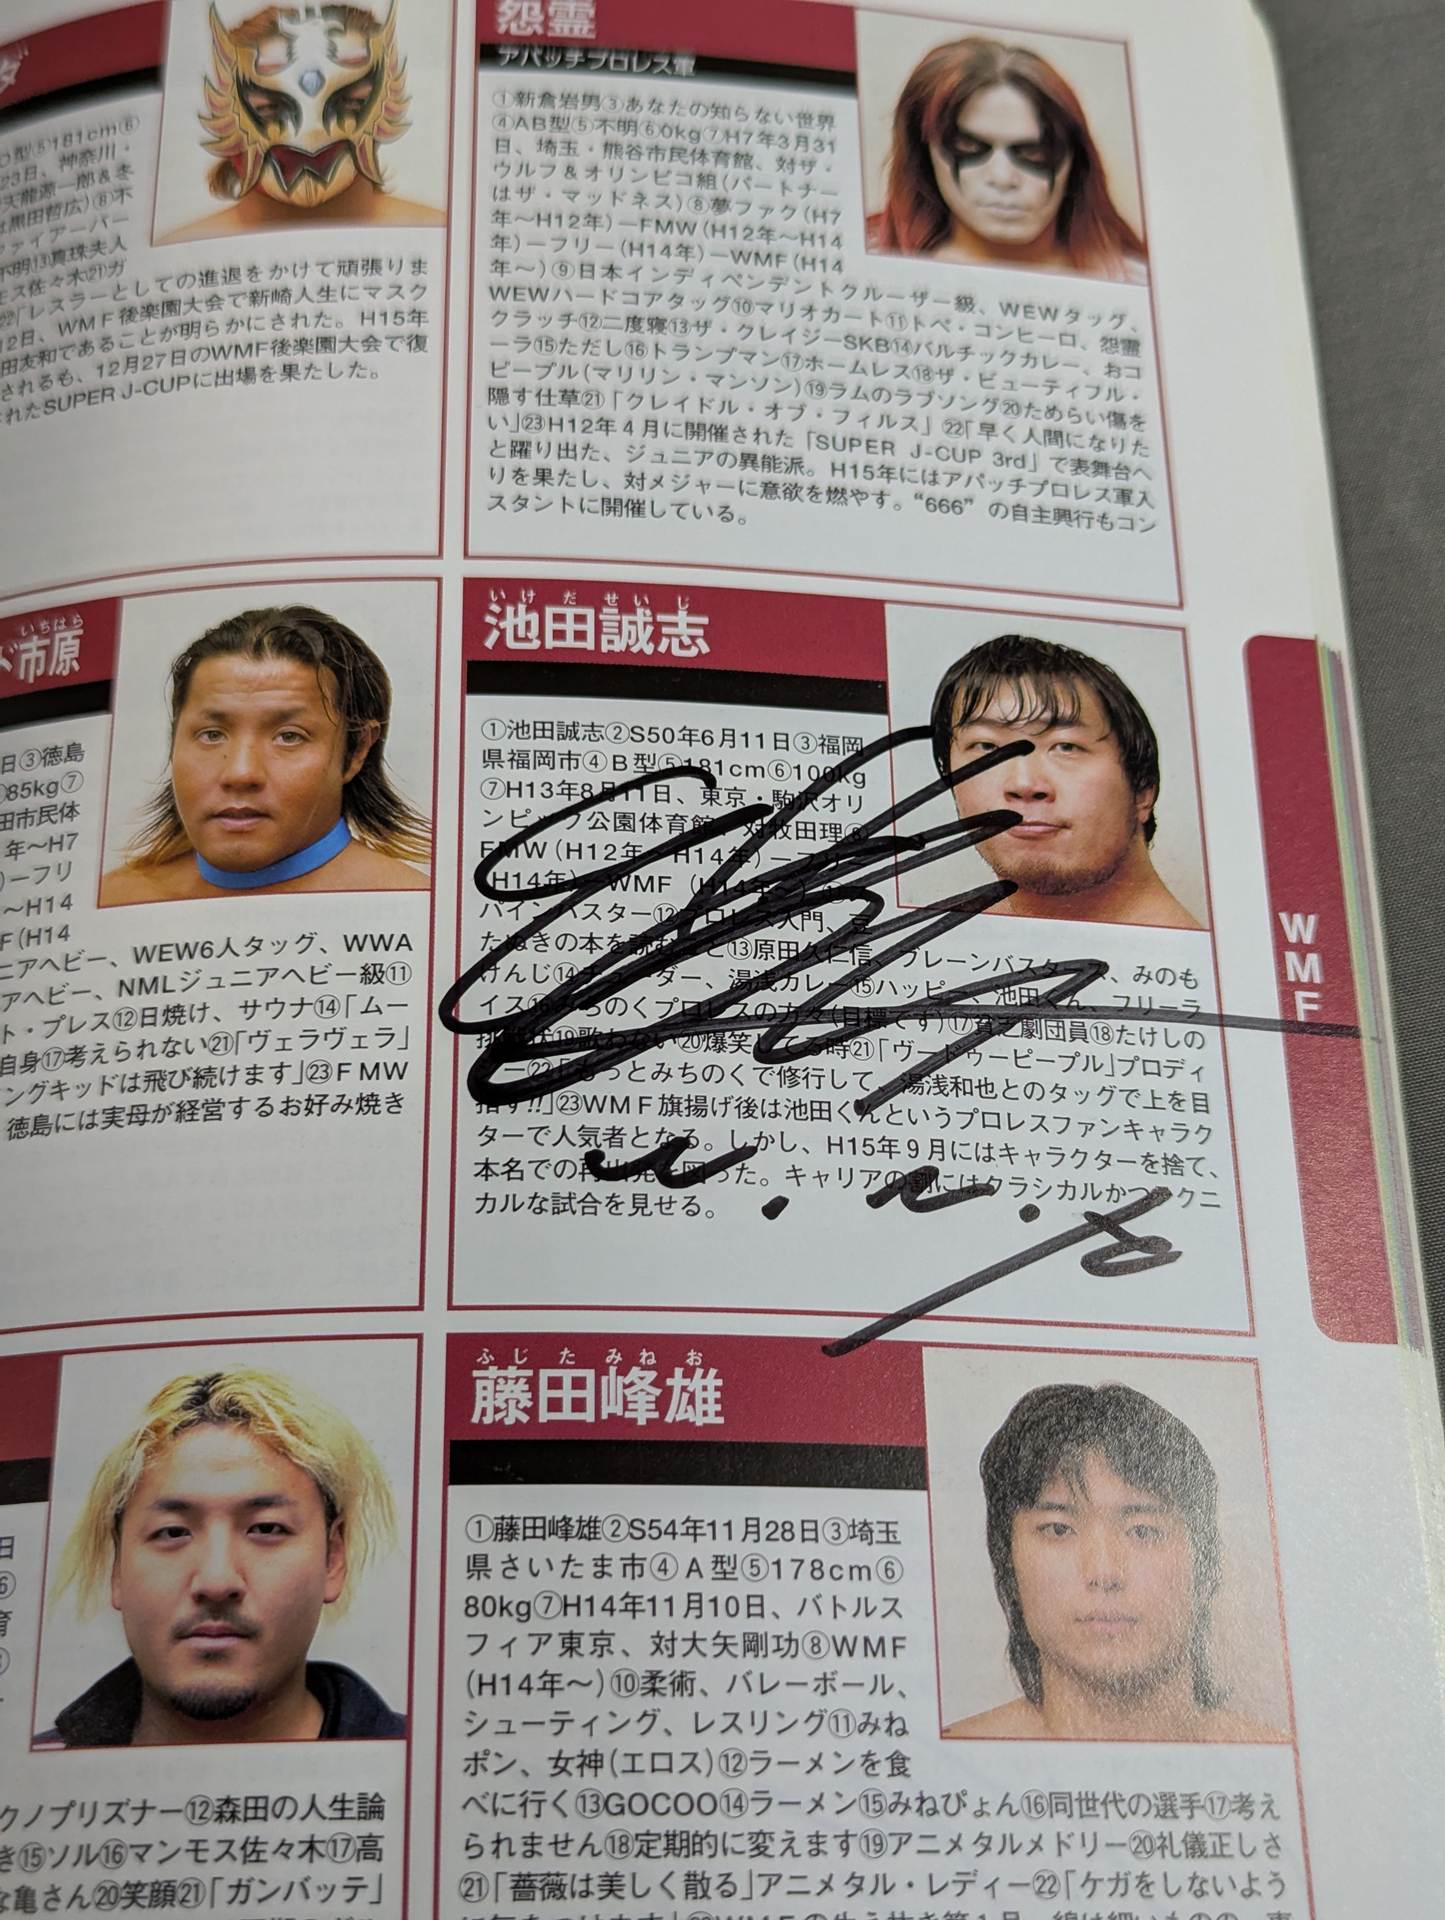 怨霊
アパッチプロレス軍
①新倉岩男③あなたの知らない世界
④AB型⑤不明⑥0kg⑦H7年3月31
日、埼玉・熊谷市民体育館、対ザ・
ウルフ＆オリンピコ組(パートナー
はザ・マッドネス)⑧夢ファク(H7
年～H12年)ーFMW(H12年～H14
年)ーフリー(H14年)ーWMF(H14
年～)⑨日本インディペンデントクルーザー級、WEWタッグ、
WEWハードコアタッグ⑩マリオカート⑪トペ・コンヒーロ、怨霊
クラッチ⑫二度寝⑬ザ・クレイジーSKB⑭バルチックカレー、おコ
ーラ⑮ただし⑯トランプマン⑰ホームレス⑱ザ・ビューティフル・
ピープル(マリリン・マンソン)⑲ラムのラブソング⑳ためらい傷を
隠す仕草㉑「クレイドル・オブ・フィルス」㉒「早く人間になりた
い」㉓H12年4月に開催された「SUPER J-CUP 3rd」で表舞台へ
と躍り出た、ジュニアの異能派。H15年にはアパッチプロレス軍入
りを果たし、対メジャーに意欲を燃やす。“666”の自主興行もコン
スタントに開催している。
型⑤181cm⑥
23日、神奈川・
天龍源一郎＆冬
は黒田哲広)⑧不
ァイアーバー
不明⑬真珠夫人
モス佐々木㉑ガ
㉒「レスラーとしての進退をかけて頑張りま
2日、WMF後楽園大会で新崎人生にマスク
田友和であることが明らかにされた。H15年
されるも、12月27日のWMF後楽園大会で復
れたSUPER J-CUPに出場を果たした。
いちはら
ド市原
日③徳島
85kg⑦
田市民体
年～H7
)ーフリ
～H14
F(H14
ニアヘビー、WEW6人タッグ、WWA
アヘビー、NMLジュニアヘビー級⑪
ト・プレス⑫日焼け、サウナ⑭「ムー
自身⑰考えられない㉑「ヴェラヴェラ」
ングキッドは飛び続けます」㉓FMW
徳島には実母が経営するお好み焼き
いけだせいじ
池田誠志
①池田誠志②S50年6月11日③福岡
県福岡市④B型⑤181cm⑥100kg
⑦H13年8月11日、東京・駒沢オリ
ンピック公園体育館、対牧田理⑧
FMW(H12年～H14年)ーフリー
(H14年)ーWMF(H14年～)
パインバスター⑫プロレス入門、豆
たぬきの本を読むこと⑬原田久仁信、ブレーンバスターズ、みのも
けんじ⑭チューダー、湯浅カレー⑮ハッピー、池田くん、フリーラ
イス⑯みちのくプロレスの方々(目標です)⑰貧乏劇団員⑱たけしの
⑲歌わない⑳爆笑してる時㉑「ヴードゥーピープル」プロディ
ジー㉒「もっとみちのくで修行して、湯浅和也とのタッグで上を目
指す!!」㉓WMF旗揚げ後は池田くんというプロレスファンキャラク
ターで人気者となる。しかし、H15年9月にはキャラクターを捨て、
本名での再出発を図った。キャリアの割にはクラシカルかつテクニ
カルな試合を見せる。
WMF
ふじたみねお
藤田峰雄
①藤田峰雄②S54年11月28日③埼玉
県さいたま市④A型⑤178cm⑥
80kg⑦H14年11月10日、バトルス
フィア東京、対大矢剛功⑧WMF
(H14年～)⑩柔術、バレーボール、
シューティング、レスリング⑪みね
ポン、女神(エロス)⑫ラーメンを食
べに行く⑬GOCOO⑭ラーメン⑮みねぴょん⑯同世代の選手⑰考え
られません⑱定期的に変えます⑲アニメタルメドリー⑳礼儀正しさ
㉑「薔薇は美しく散る」アニメタル・レディー㉒「ケガをしないよう
クノプリズナー⑫森田の人生論
き⑮ソル⑯マンモス佐々木⑰高
な亀さん⑳笑顔㉑「ガンバッテ」